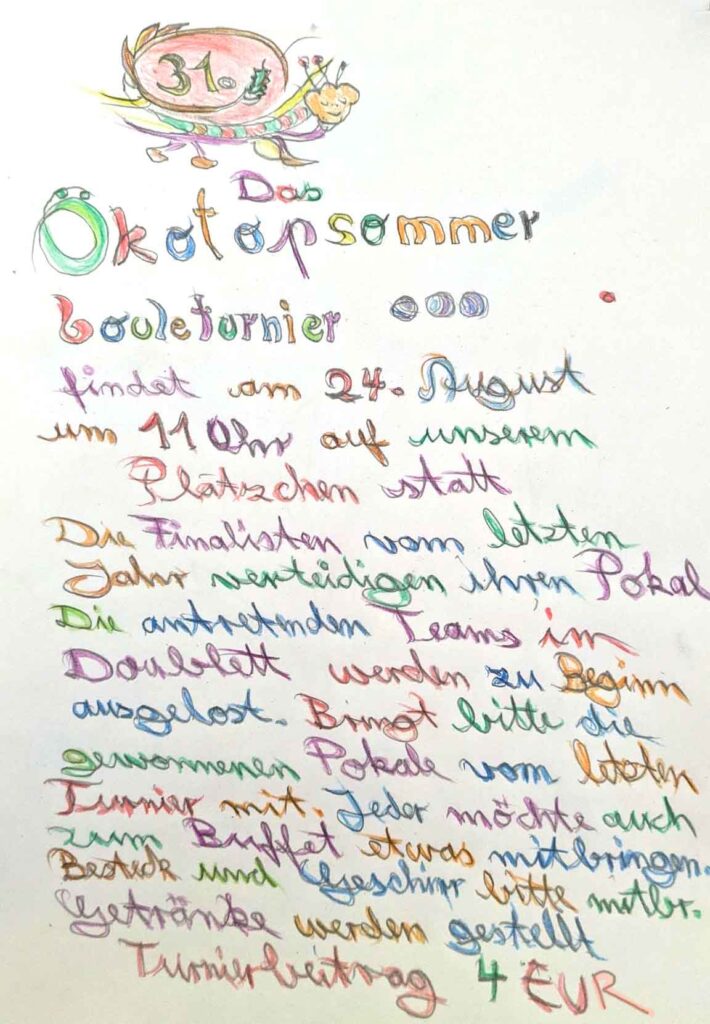 31.
Das
Ökotopsommer
bouleturnier
findet am 24. August
um 11 Uhr auf unserem
Plätzchen statt
Die Finalisten vom letzten
Jahr verteidigen ihren Pokal
Die antretenden Teams im
Doublett werden zu Beginn
ausgelost. Bringt bitte die
gewonnenen Pokale vom letzten
Turnier mit. Jeder möchte auch
zum Buffet etwas mitbringen.
Besteck und Geschirr bitte mitbr.
Getränke werden gestellt
Turnierbeitrag 4 EUR